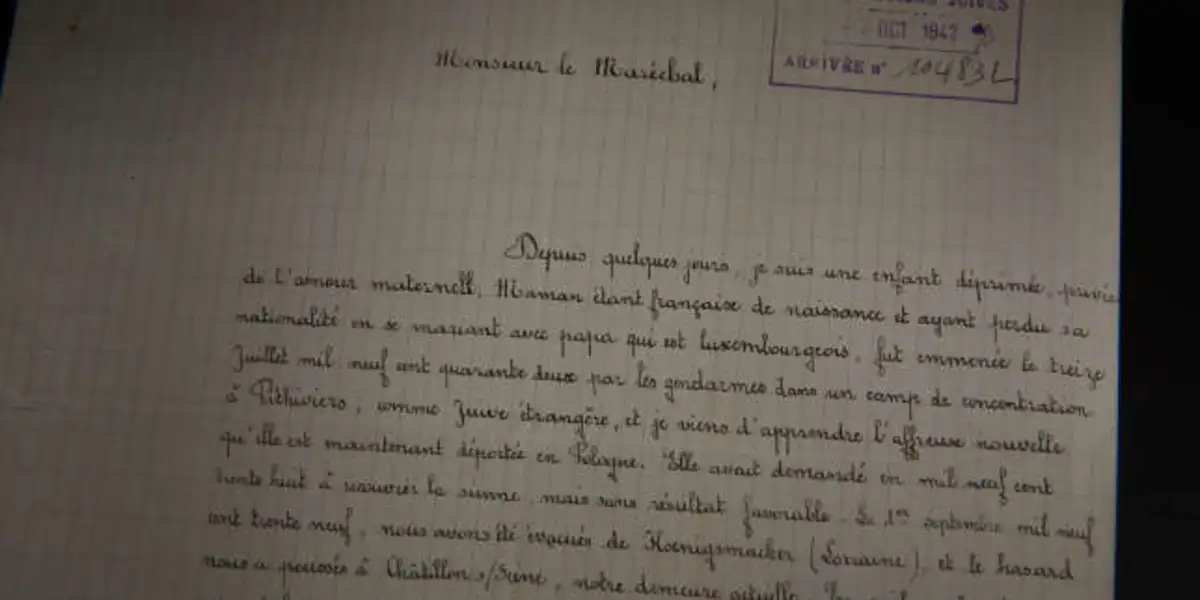 OCT 1942
ARRIVÉE N° 104831
Monsieur le Maréchal,
Depuis quelques jours, je suis une enfant déprimée, privée
de l'amour maternell. Maman étant française de naissance et ayant perdu sa
nationalité en se mariant avec papa qui est luxembourgeois, fut emmenée le treize
Juillet mil neuf cent quarante deux par les gendarmes dans un camp de concentration
à Pithiviers, comme Juive étrangère, et je viens d'apprendre l'affreuse nouvelle
qu'elle est maintenant déportée en Pologne. Elle avait demandé en mil neuf cent
trente huit à recouvrer la sienne, mais sans résultat favorable. Le 1er septembre mil neuf
cent trente neuf, nous avons été évacués de Koenigsmacker (Lorraine), et le hasard
nous a poussés à Châtillon s/Seine, notre demeure actuelle.